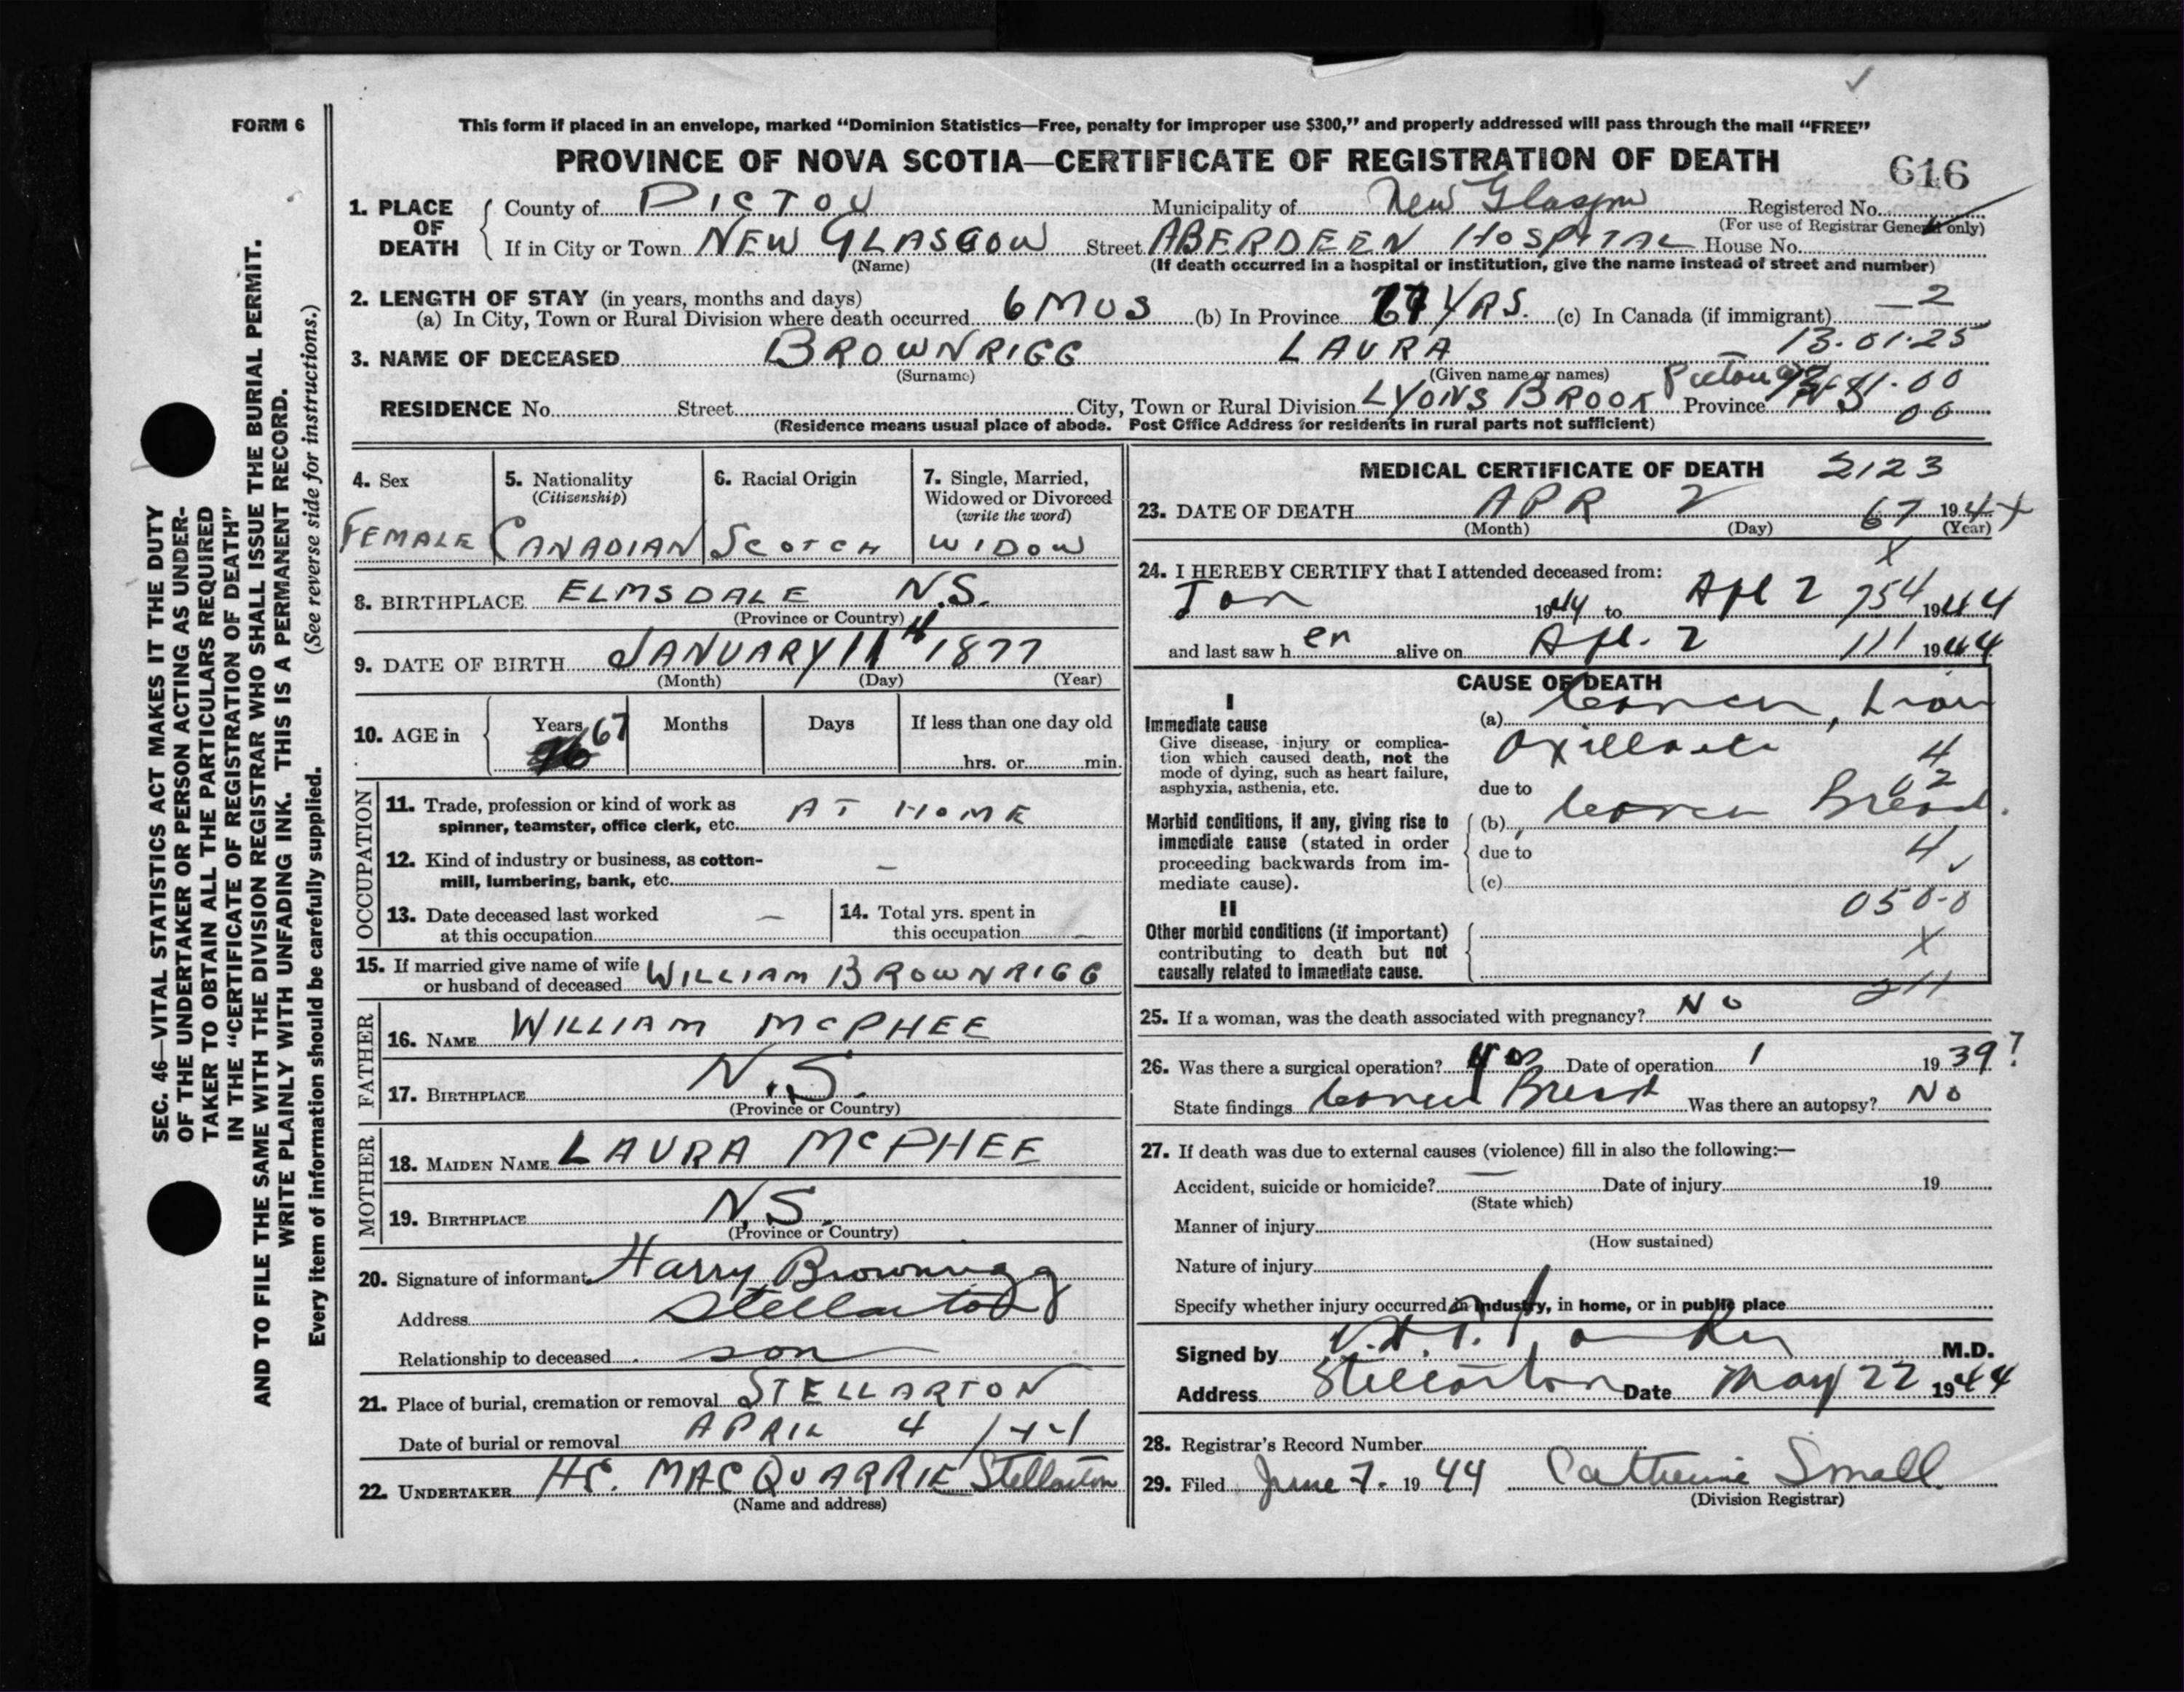 FORM 6
This form if placed in an envelope, marked "Dominion Statistics—Free, penalty for improper use $300," and properly addressed will pass through the mail "FREE"
PROVINCE OF NOVA SCOTIA—CERTIFICATE OF REGISTRATION OF DEATH
616
1. PLACE OF DEATH
County of PICTOU Municipality of New Glasgow Registered No.
(For use of Registrar General only)
If in City or Town NEW GLASGOW Street ABERDEEN HOSPITAL House No.
(Name) (If death occurred in a hospital or institution, give the name instead of street and number)
2. LENGTH OF STAY (in years, months and days)
(a) In City, Town or Rural Division where death occurred 6 MOS (b) In Province YRS. (c) In Canada (if immigrant) —2
13.01.25
3. NAME OF DECEASED BROWNRIGG LAURA
(Surname) (Given name or names)
RESIDENCE No. Street City, Town or Rural Division LYONS BROOK Pictou Co Province N S
00
(Residence means usual place of abode. Post Office Address for residents in rural parts not sufficient)
4. Sex
FEMALE
5. Nationality
(Citizenship)
CANADIAN
6. Racial Origin
SCOTCH
7. Single, Married,
Widowed or Divorced
(write the word)
WIDOW
8. BIRTHPLACE ELMSDALE N.S.
(Province or Country)
9. DATE OF BIRTH JANUARY 11th 1877
(Month) (Day) (Year)
10. AGE in
Years 67 Months Days If less than one day old
hrs. or min.
OCCUPATION
11. Trade, profession or kind of work as
spinner, teamster, office clerk, etc. AT HOME
12. Kind of industry or business, as cotton-
mill, lumbering, bank, etc. —
13. Date deceased last worked
at this occupation —
14. Total yrs. spent in
this occupation —
15. If married give name of wife
or husband of deceased WILLIAM BROWNRIGG
FATHER
16. NAME WILLIAM McPHEE
17. BIRTHPLACE N.S.
(Province or Country)
MOTHER
18. MAIDEN NAME LAURA McPHEE
19. BIRTHPLACE N.S.
(Province or Country)
20. Signature of informant Harry Brownrigg
Address Stellarton
Relationship to deceased son
21. Place of burial, cremation or removal STELLARTON
Date of burial or removal APRIL 4
22. UNDERTAKER HS. MACQUARRIE Stellarton
(Name and address)
MEDICAL CERTIFICATE OF DEATH 2123
23. DATE OF DEATH APR 2 67 1944
(Month) (Day) (Year)
X
24. I HEREBY CERTIFY that I attended deceased from:
Jan 1944 to Apl 2 754 1944
and last saw her alive on Apl. 2 111 1944
CAUSE OF DEATH
I
Immediate cause
Give disease, injury or complica-
tion which caused death, not the
mode of dying, such as heart failure,
asphyxia, asthenia, etc.
(a) Cancer,
4
02
due to
Morbid conditions, if any, giving rise to
immediate cause (stated in order
proceeding backwards from im-
mediate cause).
(b) Cancer Breast.
due to
4
(c)
050-0
II
Other morbid conditions (if important)
contributing to death but not
causally related to immediate cause.
X
211
25. If a woman, was the death associated with pregnancy? NO
26. Was there a surgical operation? Yes Date of operation 1 1939?
State findings Cancer Breast Was there an autopsy? No
27. If death was due to external causes (violence) fill in also the following:—
Accident, suicide or homicide? — Date of injury 19
(State which)
Manner of injury
(How sustained)
Nature of injury
Specify whether injury occurred in industry, in home, or in public place
Signed by M.D.
Address Stellarton Date May 22 1944
28. Registrar's Record Number
29. Filed June 7. 1944 Catherine Small
(Division Registrar)
SEC. 46—VITAL STATISTICS ACT MAKES IT THE DUTY
OF THE UNDERTAKER OR PERSON ACTING AS UNDER-
TAKER TO OBTAIN ALL THE PARTICULARS REQUIRED
IN THE "CERTIFICATE OF REGISTRATION OF DEATH"
AND TO FILE THE SAME WITH THE DIVISION REGISTRAR WHO SHALL ISSUE THE BURIAL PERMIT.
WRITE PLAINLY WITH UNFADING INK. THIS IS A PERMANENT RECORD.
Every item of information should be carefully supplied. (See reverse side for instructions.)